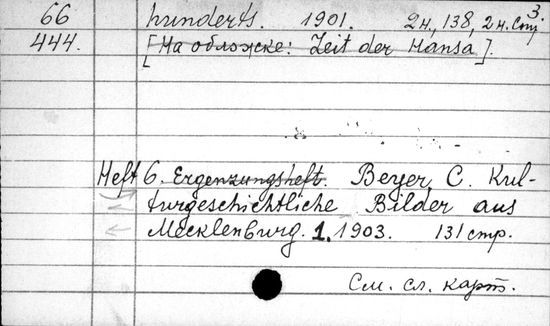 66 hunderts. 1901. 2н., 138, 2н. стр. 3.
444. [На обложке: Zeit der Hansa].
Heft 6. Ergenzungsheft. Beyer, C. Kul-
turgeschichtliche Bilder aus
Mecklenburg. 1. 1903. 131 стр.
См. сл. карт.